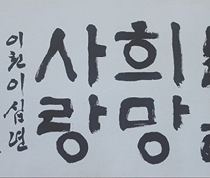 희망
사랑
이천이십년